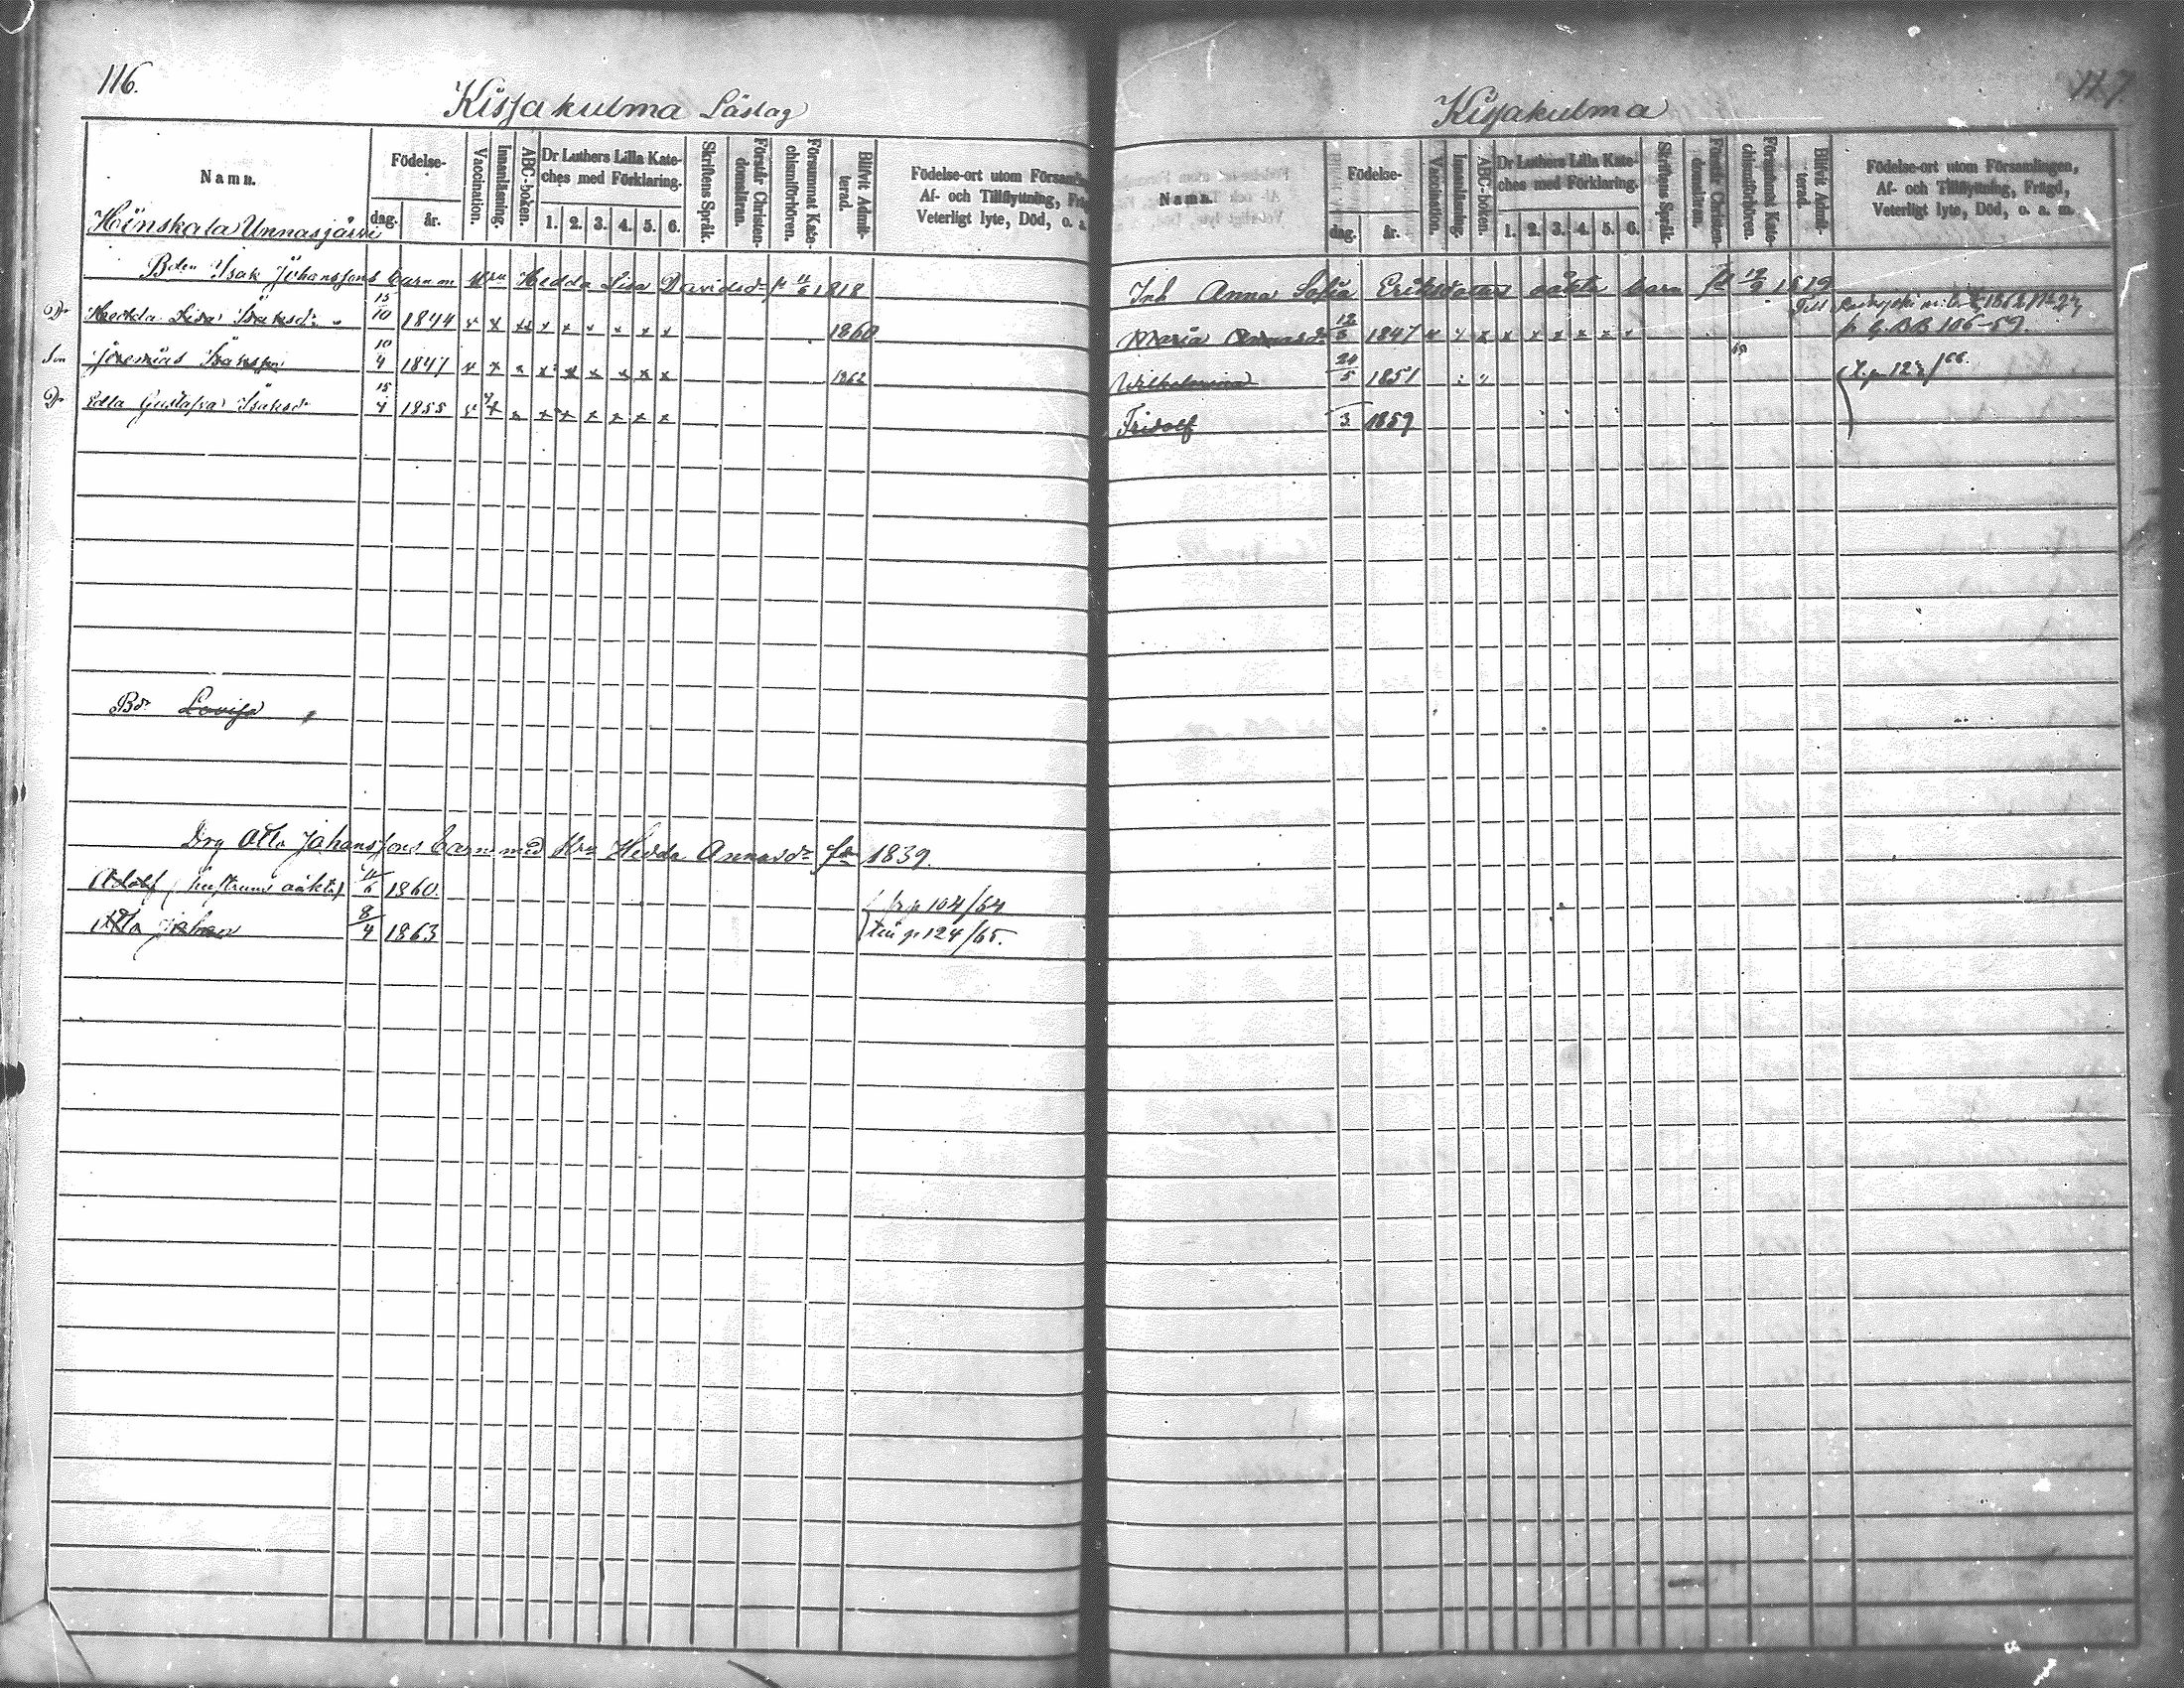 116.
Kissakulma Läslag
Namn.
Födelse-
dag.
år.
Vaccination.
Innanläsning.
ABC-boken.
Dr Luthers Lilla Kate-
ches med Förklaring.
1. 2. 3. 4. 5. 6.
Skriftens Språk.
Förstår Christen-
domsläran.
Försummat Kate-
chismiförhören.
Blifvit Admit-
terad.
Födelse-ort utom Församlin
Af- och Tillflyttning, Fräg
Veterligt lyte, Död, o. a.
Hinskala Unnasjärvi
Bden Isak Johanssons barn m Hru Hedda Lisa Davidsdr f 11/6 1818
Dr Hedda Lisa Isaksdr 15/10 1844 v x xx x x x x x x 1860
Son Jeremias Isaksson 10/4 1847 v x x x x x x x x 1862
Dr Edla Gustafva Isaksdr 15/4 1855 v x x x x x x x x
Bdr Lovisa
Drg Otto Johanssons barn med Hru Hedda Annasdr för 1839.
Adolf (hustruns oäkta) 11/6 1860.
fr p 104/64
Otto Johan 8/4 1863
till p 124/65.
117.
Kissakulma
Namn.
Födelse-
dag.
år.
Vaccination.
Innanläsning.
ABC-boken.
Dr Luthers Lilla Kate-
ches med Förklaring.
1. 2. 3. 4. 5. 6.
Skriftens Språk.
Förstår Christen-
domsläran.
Försummat Kate-
chismiförhören.
Blifvit Admit-
terad.
Födelse-ort utom Församlingen,
Af- och Tillflyttning, Frägd,
Veterligt lyte, Död, o. a. m.
Inh Anna Sofia Eriksdotters oäkta barn fd 12/9 1819
Maria Annasdr 1847 v x x x x x x x x
p G. BB 106-59.
Wilhelmina 24/5 1851
Fridolf 3 1859